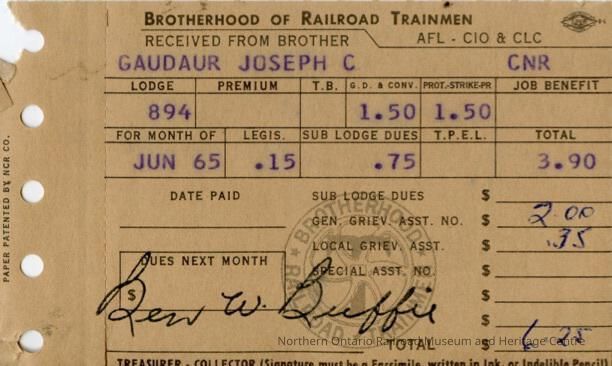 BROTHERHOOD OF RAILROAD TRAINMEN
RECEIVED FROM BROTHER AFL - CIO & CLC
GAUDAUR JOSEPH C CNR
LODGE PREMIUM T.B. G.D. & CONV. PROT.-STRIKE-PR JOB BENEFIT
894 1.50 1.50
FOR MONTH OF LEGIS. SUB LODGE DUES T.P.E.L. TOTAL
JUN 65 .15 .75 3.90
DATE PAID SUB LODGE DUES $
GEN. GRIEV. ASST. NO. $ 2.00
LOCAL GRIEV. ASST. $ .35
DUES NEXT MONTH SPECIAL ASST. NO. $
$ $
Ben W. Buffie $
TOTAL $ 6 25
TREASURER - COLLECTOR (Signature must be a Facsimile, written in Ink, or Indelible Pencil)
PAPER PATENTED BY NCR CO.
BROTHERHOOD
RAILROAD TRAINMEN
Northern Ontario Railroad Museum and Heritage Centre